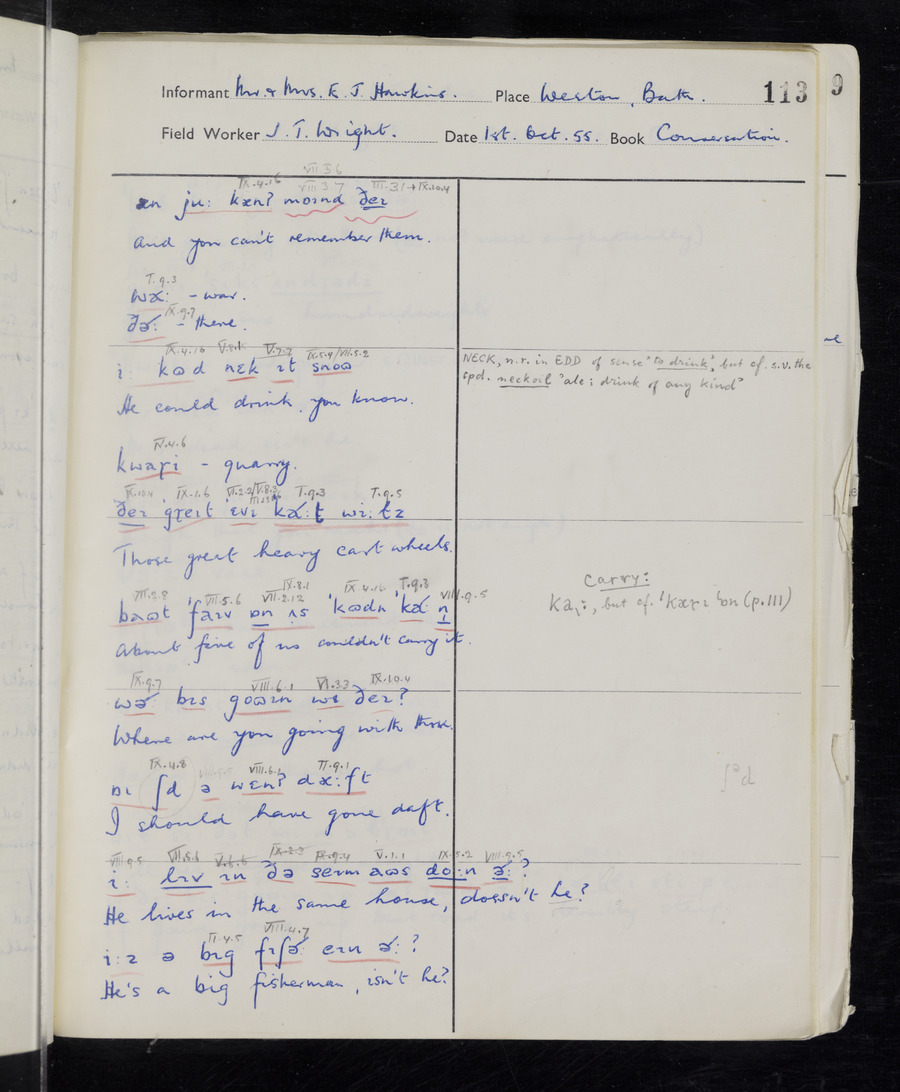 Informant Mr. & Mrs. E. J. Hawkins. Place Weston, Bath. 113 9
Field Worker J. T. Wright. Date 1st. Oct. 55. Book Conversation.
VII.3.6
IX.4.16 VIII.3.7 III.3.1 + IX.10.4
ən ju: kænʔ moɪnd ðeɪ
And you can't remember them.
T.9.3
wɑ: - war.
IX.9.7
ðɚ: - there.
IX.4.16 IX.5.4/VII.5.2
i: kʊd nɛk ɪt snoʊ
He could drink, you know.
NECK, n.r. in EDD of sense "to drink", but cf. s.v. the
spd. neckoil "ale: drink of any kind"
IV.4.6
kwaɻi - quarry.
IX.10.4 IX.1.6 T.9.3 T.9.5
ðeɪ gɻeɪt 'ɛvɪ kɑ:t wi:lz
Those great heavy cart wheels.
VII.2.8 VII.5.6 VII.2.12 IX.8.1 IX.4.16 T.9.3 VIII.9.5
baʊt 'faɪv ɒn ʌs 'kʊdn 'kɑ: n
About five of us couldn't carry it.
carry:
kaɹ:, but cf. 'kæɻɪ 'ɒn (p.111)
IX.9.7 VIII.6.1 VI.3.3 IX.10.4
wɚ: bɪs goʊɪn wɪ ðeɪ?
Where are you going with those.
IX.4.8 VIII.6.1 II.9.1
ɒɪ ʃd ə wɛnʔ dɑ:ft
I should have gone daft.
ʃəd
VIII.9.5 VII.5.6 V.6.6 IX.2.3 IX.9.4 V.1.1 IX.5.2 VIII.9.5
i: lɪv ɪn ðə seɪm aʊs do:n ə:?
He lives in the same house, doesn't he?
II.4.5 VIII.4.7
i:z ə bɪg fɪʃɚ eɪn ɚ:?
He's a big fisherman, isn't he?